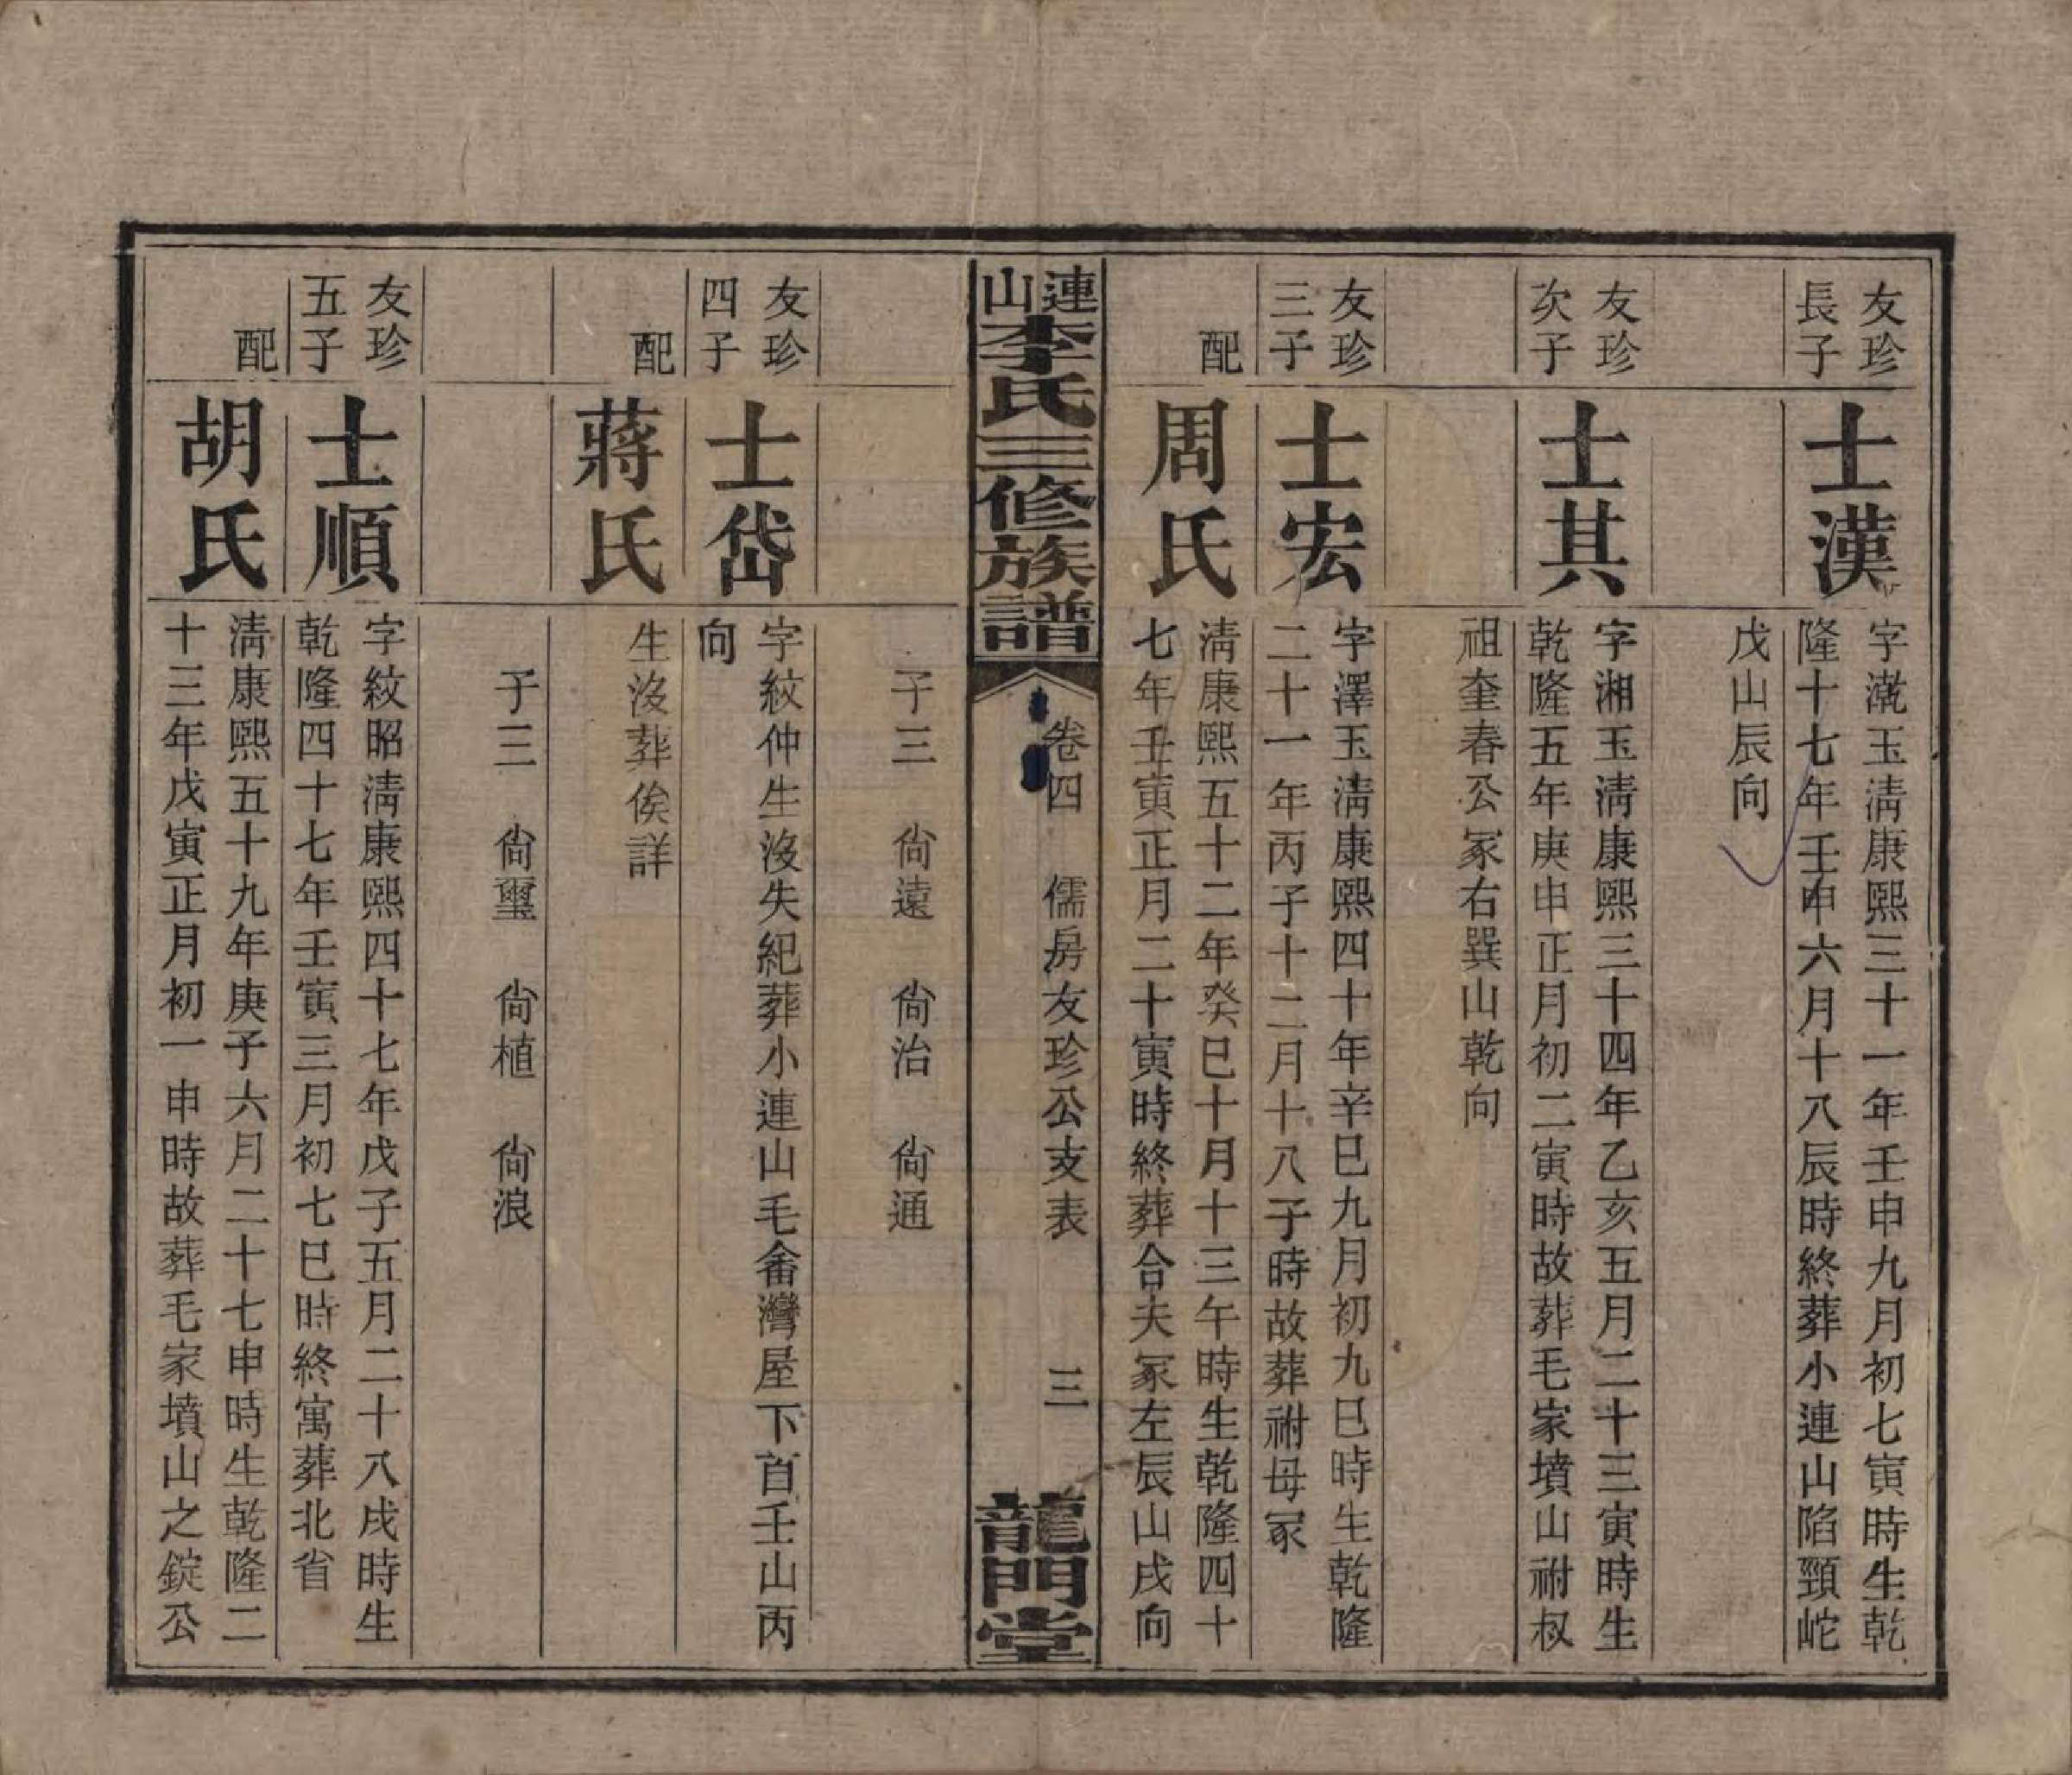 友珍
長子
士漢
字澂玉淸康熙三十一年壬申九月初七寅時生乾
隆十七年壬申六月十八辰時終葬小連山陷頸岮
戊山辰向
友珍
次子
士其
字湘玉淸康熙三十四年乙亥五月二十三寅時生
乾隆五年庚申正月初二寅時故葬毛家墳山祔叔
祖奎春公冢右巽山乾向
友珍
三子
士宏
字澤玉淸康熙四十年辛巳九月初九巳時生乾隆
二十一年丙子十二月十八子時故葬祔母冢
配
周氏
淸康熙五十二年癸巳十月十三午時生乾隆四十
七年壬寅正月二十寅時終葬合夫冢左辰山戌向
連山李氏三修族譜
卷四 儒房友珍公支表 三
龍門堂
子三 尙遠 尙治 尙通
友珍
四子
士岱
字紋仲生沒失紀葬小連山毛畲灣屋下首壬山丙
向
配
蔣氏
生沒葬俟詳
子三 尙璽 尙植 尙浪
友珍
五子
士順
字紋昭淸康熙四十七年戊子五月二十八戌時生
乾隆四十七年壬寅三月初七巳時終寓葬北省
配
胡氏
淸康熙五十九年庚子六月二十七申時生乾隆二
十三年戊寅正月初一申時故葬毛家墳山之錠公